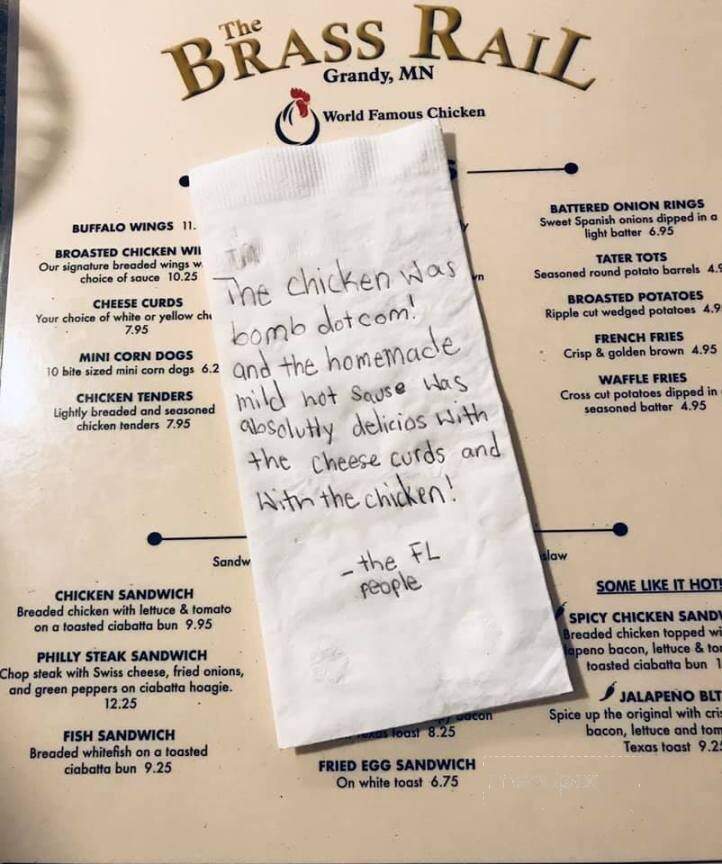 The
BRASS RAIL
Grandy, MN
World Famous Chicken
BUFFALO WINGS 11.
BROASTED CHICKEN
Our signature breaded wings
choice of sauce 10.25
CHEESE CURDS
Your choice of white or yellow
7.95
MINI CORN DOGS
10 bite sized mini corn dogs 6.2
CHICKEN TENDERS
Lightly breaded and seasoned
chicken tenders 7.95
BATTERED ONION RINGS
Sweet Spanish onions dipped in a
light batter 6.95
TATER TOTS
Seasoned round potato barrels 4.9
BROASTED POTATOES
Ripple cut wedged potatoes 4.9
FRENCH FRIES
Crisp & golden brown 4.95
WAFFLE FRIES
Cross cut potatoes dipped in
seasoned batter 4.95
The chicken was
bomb dotcom!
and the homemade
mild hot sause was
absolutly delicios with
the cheese curds and
with the chicken!
-the FL
people
Sandw
slaw
CHICKEN SANDWICH
Breaded chicken with lettuce & tomato
on a toasted ciabatta bun 9.95
PHILLY STEAK SANDWICH
Chop steak with Swiss cheese, fried onions,
and green peppers on ciabatta hoagie.
12.25
FISH SANDWICH
Breaded whitefish on a toasted
ciabatta bun 9.25
bacon
Texas toast 8.25
FRIED EGG SANDWICH
On white toast 6.75
SOME LIKE IT HOT!
SPICY CHICKEN SANDW
Breaded chicken topped wi
lapeno bacon, lettuce & tom
toasted ciabatta bun 1
JALAPENO BLT
Spice up the original with cris
bacon, lettuce and tom
Texas toast 9.25